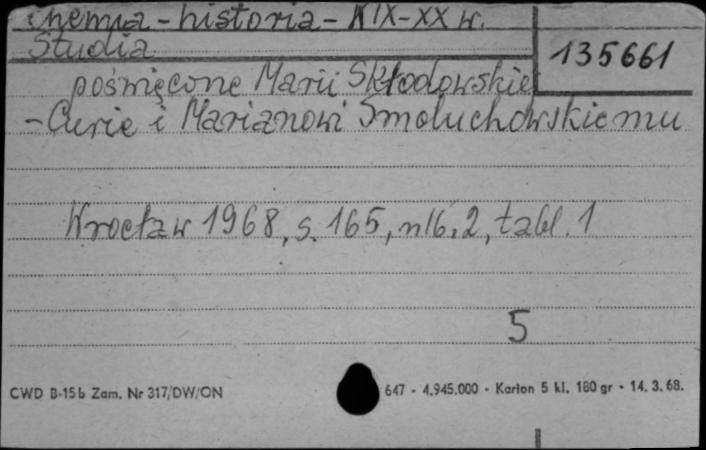 Chemia - historia - XIX-XX w.
Studia
135661
poświęcone Marii Skłodowskiej
-Curie i Marianowi Smoluchowskiemu
Wrocław 1968, s. 165, nlb. 2, tabl. 1
5
CWD B-15b Zam. Nr 317/DW/ON
647 - 4.945.000 - Karton 5 kl. 180 gr - 14. 3. 68.